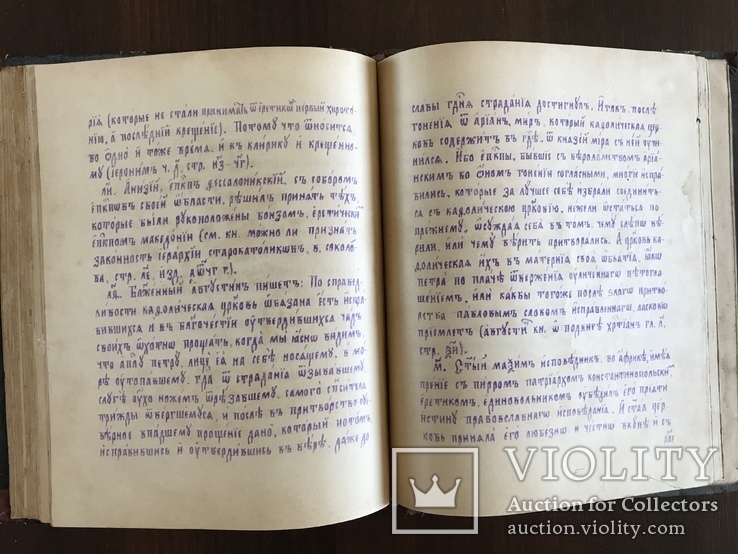 рїѧ (которые не стали принимать ѿ еретикѡ первый хирото-
нїю, а҆ последнїй крещенїе). Потому что ѿносится
во одно́ и҆ тоже время, и҆ къ клирику и҆ крещенно-
му (їеронимъ ч. л҃, стр. н҃з-ч҃г).
л҃. Анизїй, еп҃кпъ ѳессалоникскїй, съ соборомъ
еп҃кпѡвъ своей ѡбласти, решилъ принать техъ,
которые были рукоположены бонзомъ, еретическ
еп҃кпомъ македонїи (см. кн. можно ли признать
законность їерархїи старокатоликѡвъ, в. соколо-
ва, стр. л҃е, изд. г.).
л҃ѧ. Бл҃женный а҆вгустинъ пишетъ: По справед-
ливости каѳолическая цр҃ковь ѡбязана есть испра-
вившихся и҆ въ благочестїи оутвердившихся чадъ
своихъ ѿхотнѡ прощать, когда мы ꙗснѡ видимъ,
что ап҃лу петру, лице еѧ на себе носящему, въ мо-
ре оутопавшему, гд҃а ѿ страданїя ѿзывавшему
слуге оухо ножемъ ѿрезавшему, самого сп҃сителя
трижды ѿвергшемуся, и҆ после въ притворство оу-
верное впадшему прощенїе дано, который потомъ
исправившись и҆ оутвердившись въ вере, даже до
славы гд҃ня страданїя достигнулъ. И҆такъ после
гоненїя ѿ а҆рїанъ, миръ, который каѳолическая цр҃-
ковь содержитъ въ гд҃е, ѿ князїй мїра съ ней оучи-
нился. И҆бо еп҃кпы, бывшїе съ вероломствомъ а҆рїан-
скимъ во ѿномъ гоненїи согласными, многи испра-
вились, которые за лучшее себе избрали соединить-
ся съ каѳолическою цр҃ковїю, нежели ѡстаться по
прежнему, ѡсуждая себя въ томъ, чему слепѡ ве-
рили, или чему верить притворялись. А цр҃ковь ка-
ѳолическая ихъ въ матернїя своя ѡбъятїя, ꙗкѡ
петра по плаче ѿверженїя оуличеннагѡ петогла-
шенїемъ, или какъбы тогоже после злагѡ притво-
рства павловымъ словомъ исправленнагѡ, ласковѡ
прїемлетъ (августи кн. ѡ подвиге хр҃тїан гл. л҃,
стр.).
м҃. Ст҃ый маѯимъ исповедникъ, во а҆фрике, имея
пренїе съ пирромъ патрїархомъ константинопольски
еретикомъ, единовольникомъ оубедилъ его прїяти
истину православнагѡ исповеданїя. И҆ ст҃ая цер-
ковь приняла его любезнѡ и҆ честнѡ вкупе и҆ съ
VIOLITY
Auction for Collectors
auction.violity.com